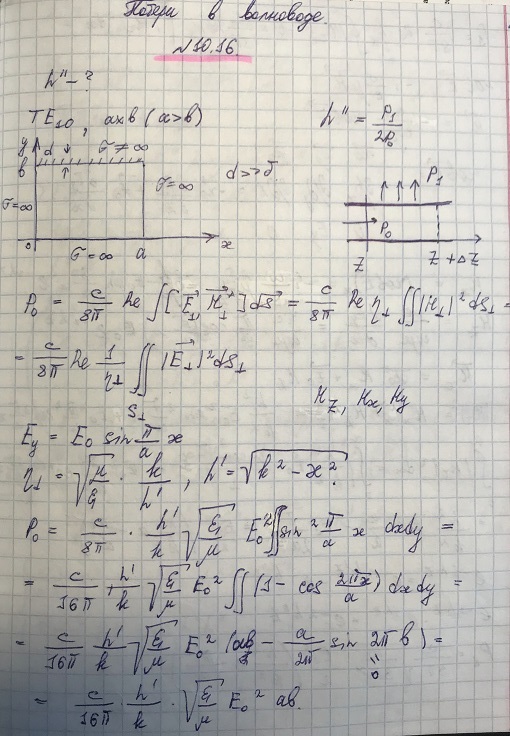 Потери в волноводе.
№10.16.
h'' - ?
TE₁₀, a×b (a>b)
h'' = P₁/2P₀
y d σ ≠ ∞
b
σ=∞ σ=∞ d>>δ
P₁
P₀
0 σ=∞ a x
z z+Δz
P₀ = c/8π Re ∫[E⃗⊥, H⃗⊥*] dS⃗ = c/8π Re η⊥ ∬|H⊥|² dS⊥ =
= c/8π Re 1/η⊥ ∬ |E⃗⊥|² dS⊥
S⊥
H_z, H_x, H_y
E_y = E₀ sin π/a x
η⊥ = √(μ/ε) · k/h', h' = √(k² - æ²)
P₀ = c/8π · h'/k √(ε/μ) E₀² ∬ sin² π/a x dxdy =
= c/16π · h'/k √(ε/μ) E₀² ∬ (1 - cos 2πx/a) dxdy =
= c/16π h'/k √(ε/μ) E₀² (ab - a/2π sin 2π b) =
= 0
= c/16π · h'/k · √(ε/μ) E₀² ab.